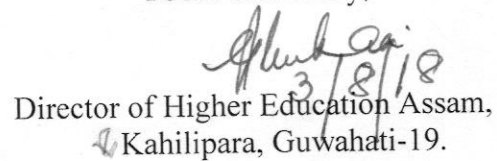 3/8/18
Director of Higher Education Assam,
Kahilipara, Guwahati-19.